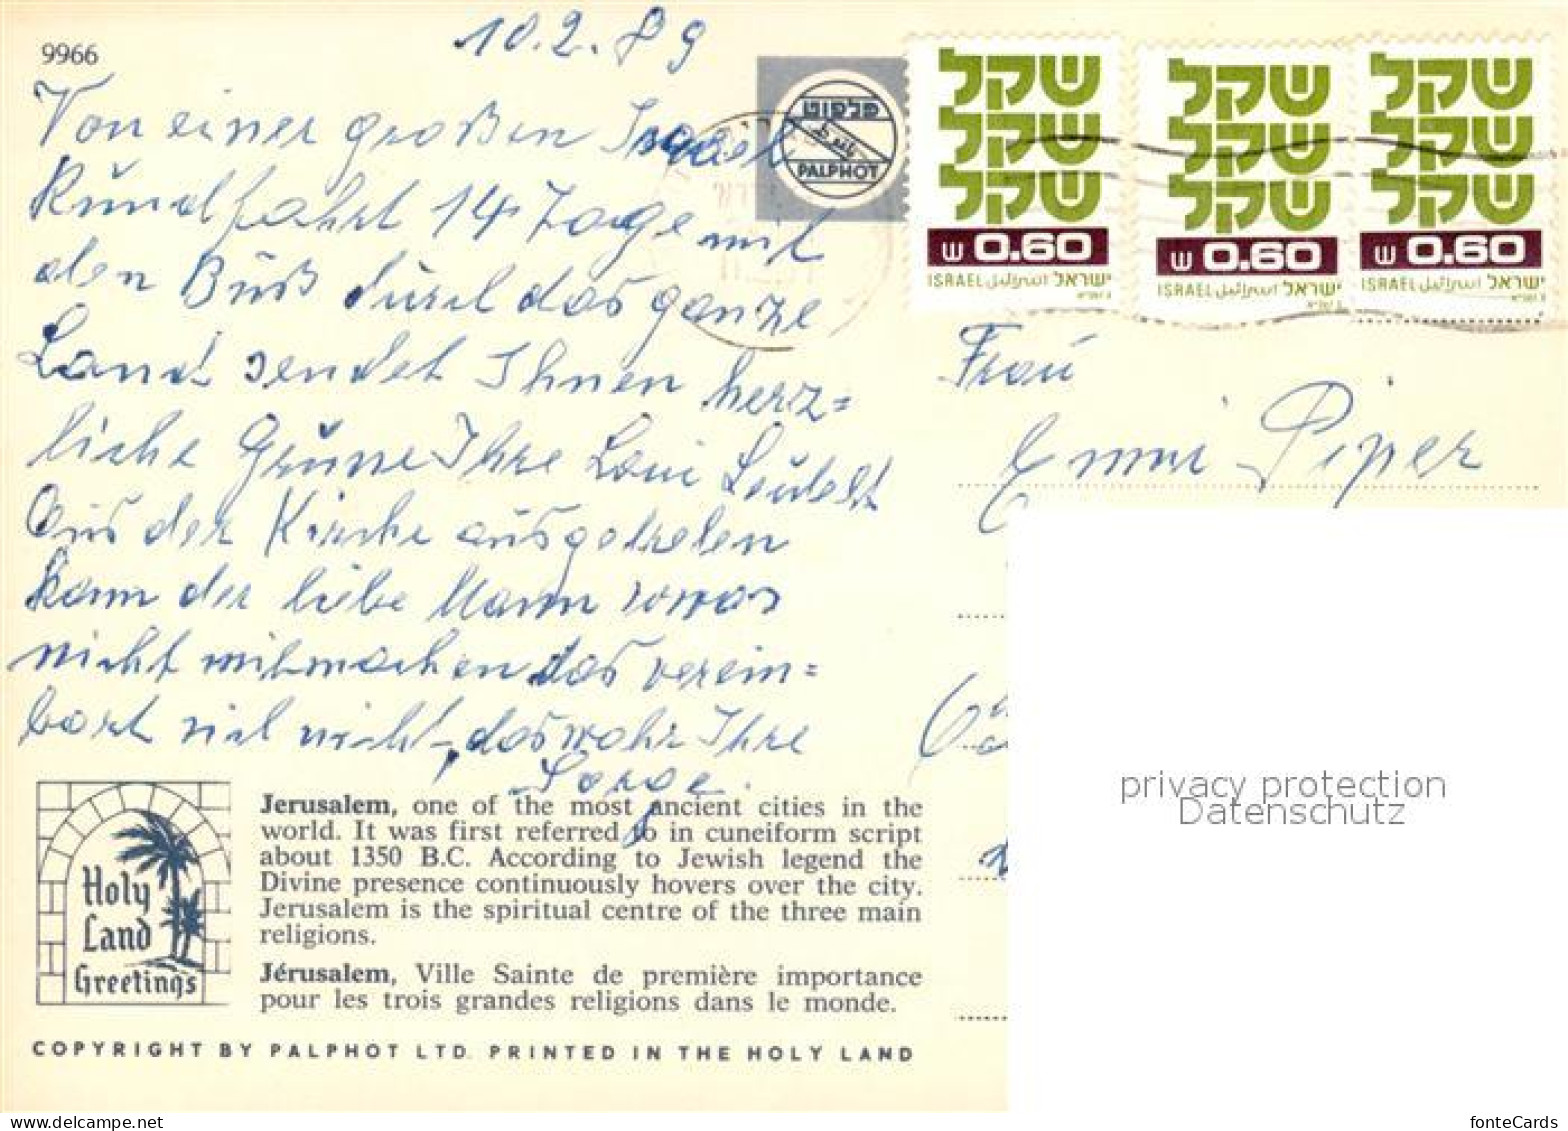 9966
10.2.89
Von einer großen Israel
Rundfahrt 14 Tage mit
den Büß durch das ganze
Land sendet Ihnen herz=
liche Grüße Ihre Loni
Aus der Kirche ausgetreten
kann der liebe Mann sowas
nicht mitmachen das verein=
bart sich nicht, das war Ihre
Sorge.
פלפוט
PALPHOT
שקל
שקל
שקל
ש 0.60
ISRAEL اسرائيل ישראל
שקל
שקל
שקל
ש 0.60
ISRAEL اسرائيل ישראל
שקל
שקל
שקל
ש 0.60
ISRAEL اسرائيل ישראל
Frau
Emmi Piper
privacy protection
Datenschutz
Holy
Land
Greetings
Jerusalem, one of the most ancient cities in the
world. It was first referred to in cuneiform script
about 1350 B.C. According to Jewish legend the
Divine presence continuously hovers over the city.
Jerusalem is the spiritual centre of the three main
religions.
Jérusalem, Ville Sainte de première importance
pour les trois grandes religions dans le monde.
COPYRIGHT BY PALPHOT LTD. PRINTED IN THE HOLY LAND
fonteCards